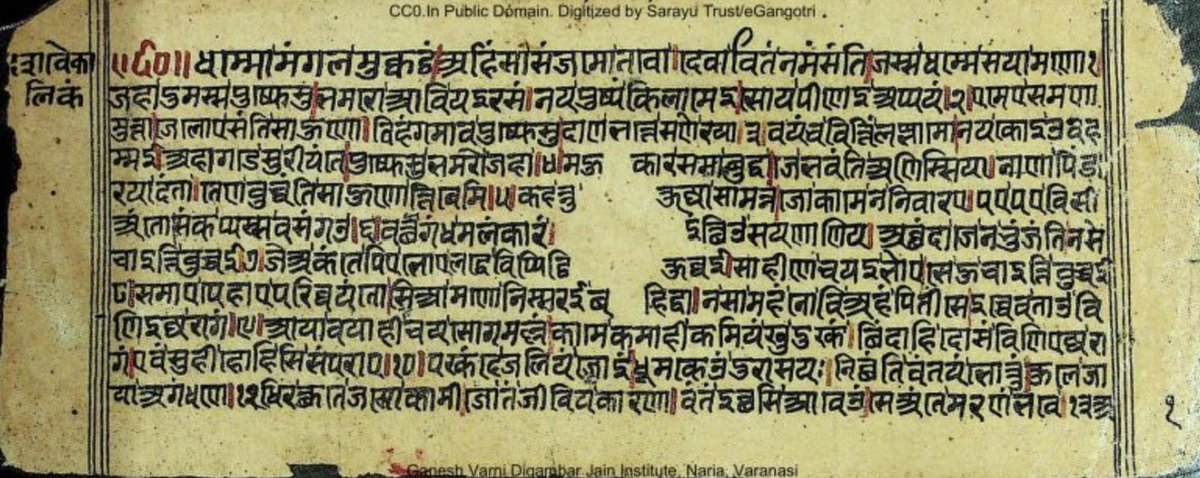 CC0.In Public Domain. Digitized by Sarayu Trust/eGangotri
दशवेका
लिकं
॥६०॥धम्मोमंगलमुक्कडं।अहिंसासंजमोतवो।देवावितंनमंसंति।जस्सधम्मेसयामणो।१
जहादुमस्सपुप्फेसु।भमरोआवियइरसं।नयपुप्फंकिलामेइ।सोयपीणेइअप्पयं।२।एमेएसमणा
मुत्ता।जेलोएसंतिसाहुणो।विहंगमावपुप्फेसु।दाणभत्तेसणेरया।३।वयंचवित्तिंलब्भामो।नयकोइउवह
म्मइ।अहागडेसुरीयंते।पुप्फेसुभमरोजहा।४।महु कारसमाबुद्धा।जेभवंतिअणिस्सिया।नाणापिंड
रयादंता।तेणवुच्चंतिसाहुणो।त्तिबेमि।५।कहंनु कुज्जासामन्नं।जोकामेननिवारए।पएपएविसी
अंतो।संकप्पस्सवसंगउ।१।वच्छगंधमलंकारं। इच्छिउसयणाणिय।अच्छंदाजेनभुंजंतिनसे
चाइत्तिवुच्चइ।२।जेअकंतेपिएभोए।लद्धेविप्पिट्ठि कुव्वइ।साहीणेचयइभोए।सेहुचाइत्तिवुच्चइ
३।समाएपेहाएपरिव्वयंतो।सिआमणोनिस्सरईब हिद्धा।नसामहंनोविअहंपितीसे।इच्चेवताउवि
णिइज्जरागं।४।आयावयाहीचयसोगमल्लं।कामेकमाहीकमियंखुदुक्खं।छिंदाहिदोसंविणिएज्जरा
गं।एवंसुहीहोहिसिसंपराए।५।पक्खंदेजलियंजोइं।धूमकेउंदुरासयं।निच्छंतिवंतयंभोत्तुं।कुलेजा
याअगंधणे।६।धिरत्थुतेजसोकामी।जोतंजीवियकारणा।वंतंइच्छसिआवेउं।सेअंतेमरणंभवे।७।अ
१
Ganesh Varni Digambar Jain Institute, Naria, Varanasi